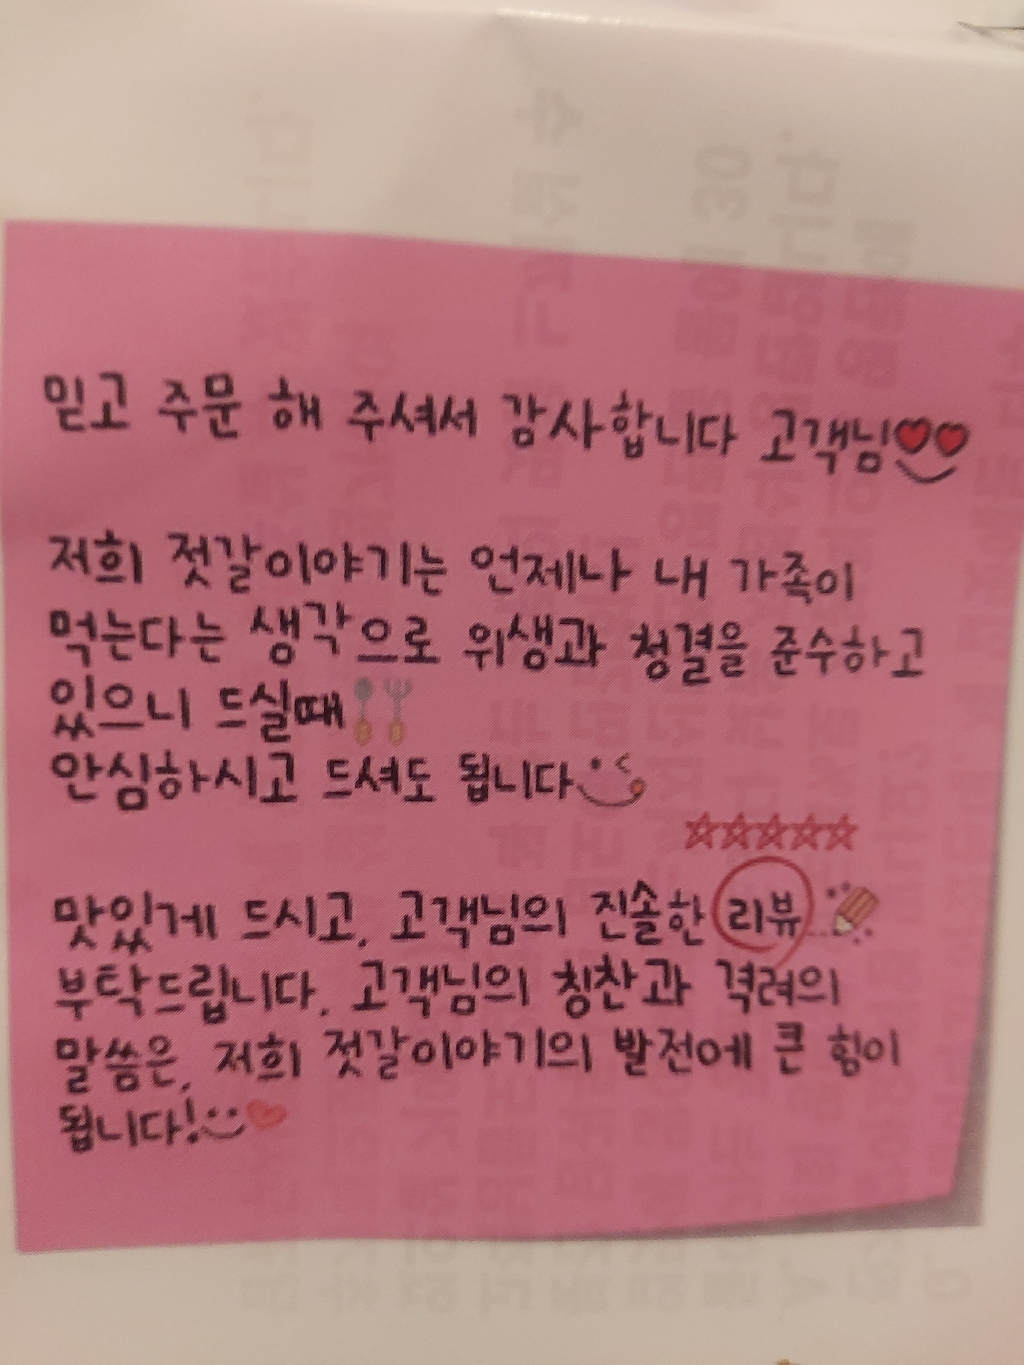 믿고 주문 해 주셔서 감사합니다 고객님
저희 젓갈이야기는 언제나 내 가족이
먹는다는 생각으로 위생과 청결을 준수하고
있으니 드실때
안심하시고 드셔도 됩니다
맛있게 드시고, 고객님의 진솔한 리뷰
부탁드립니다. 고객님의 칭찬과 격려의
말씀은, 저희 젓갈이야기의 발전에 큰 힘이
됩니다!